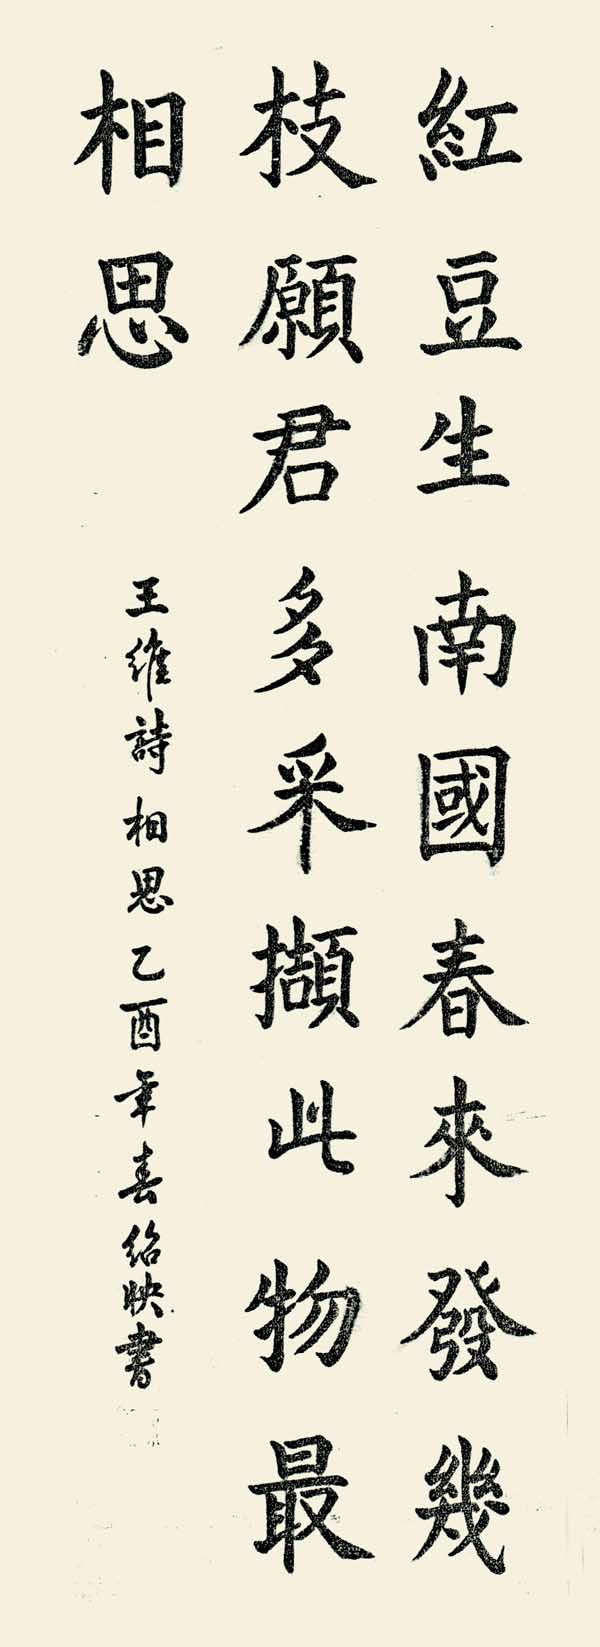 紅豆生南國春來發幾
枝願君多采擷此物最
相思
王維詩相思乙酉年春紹映書